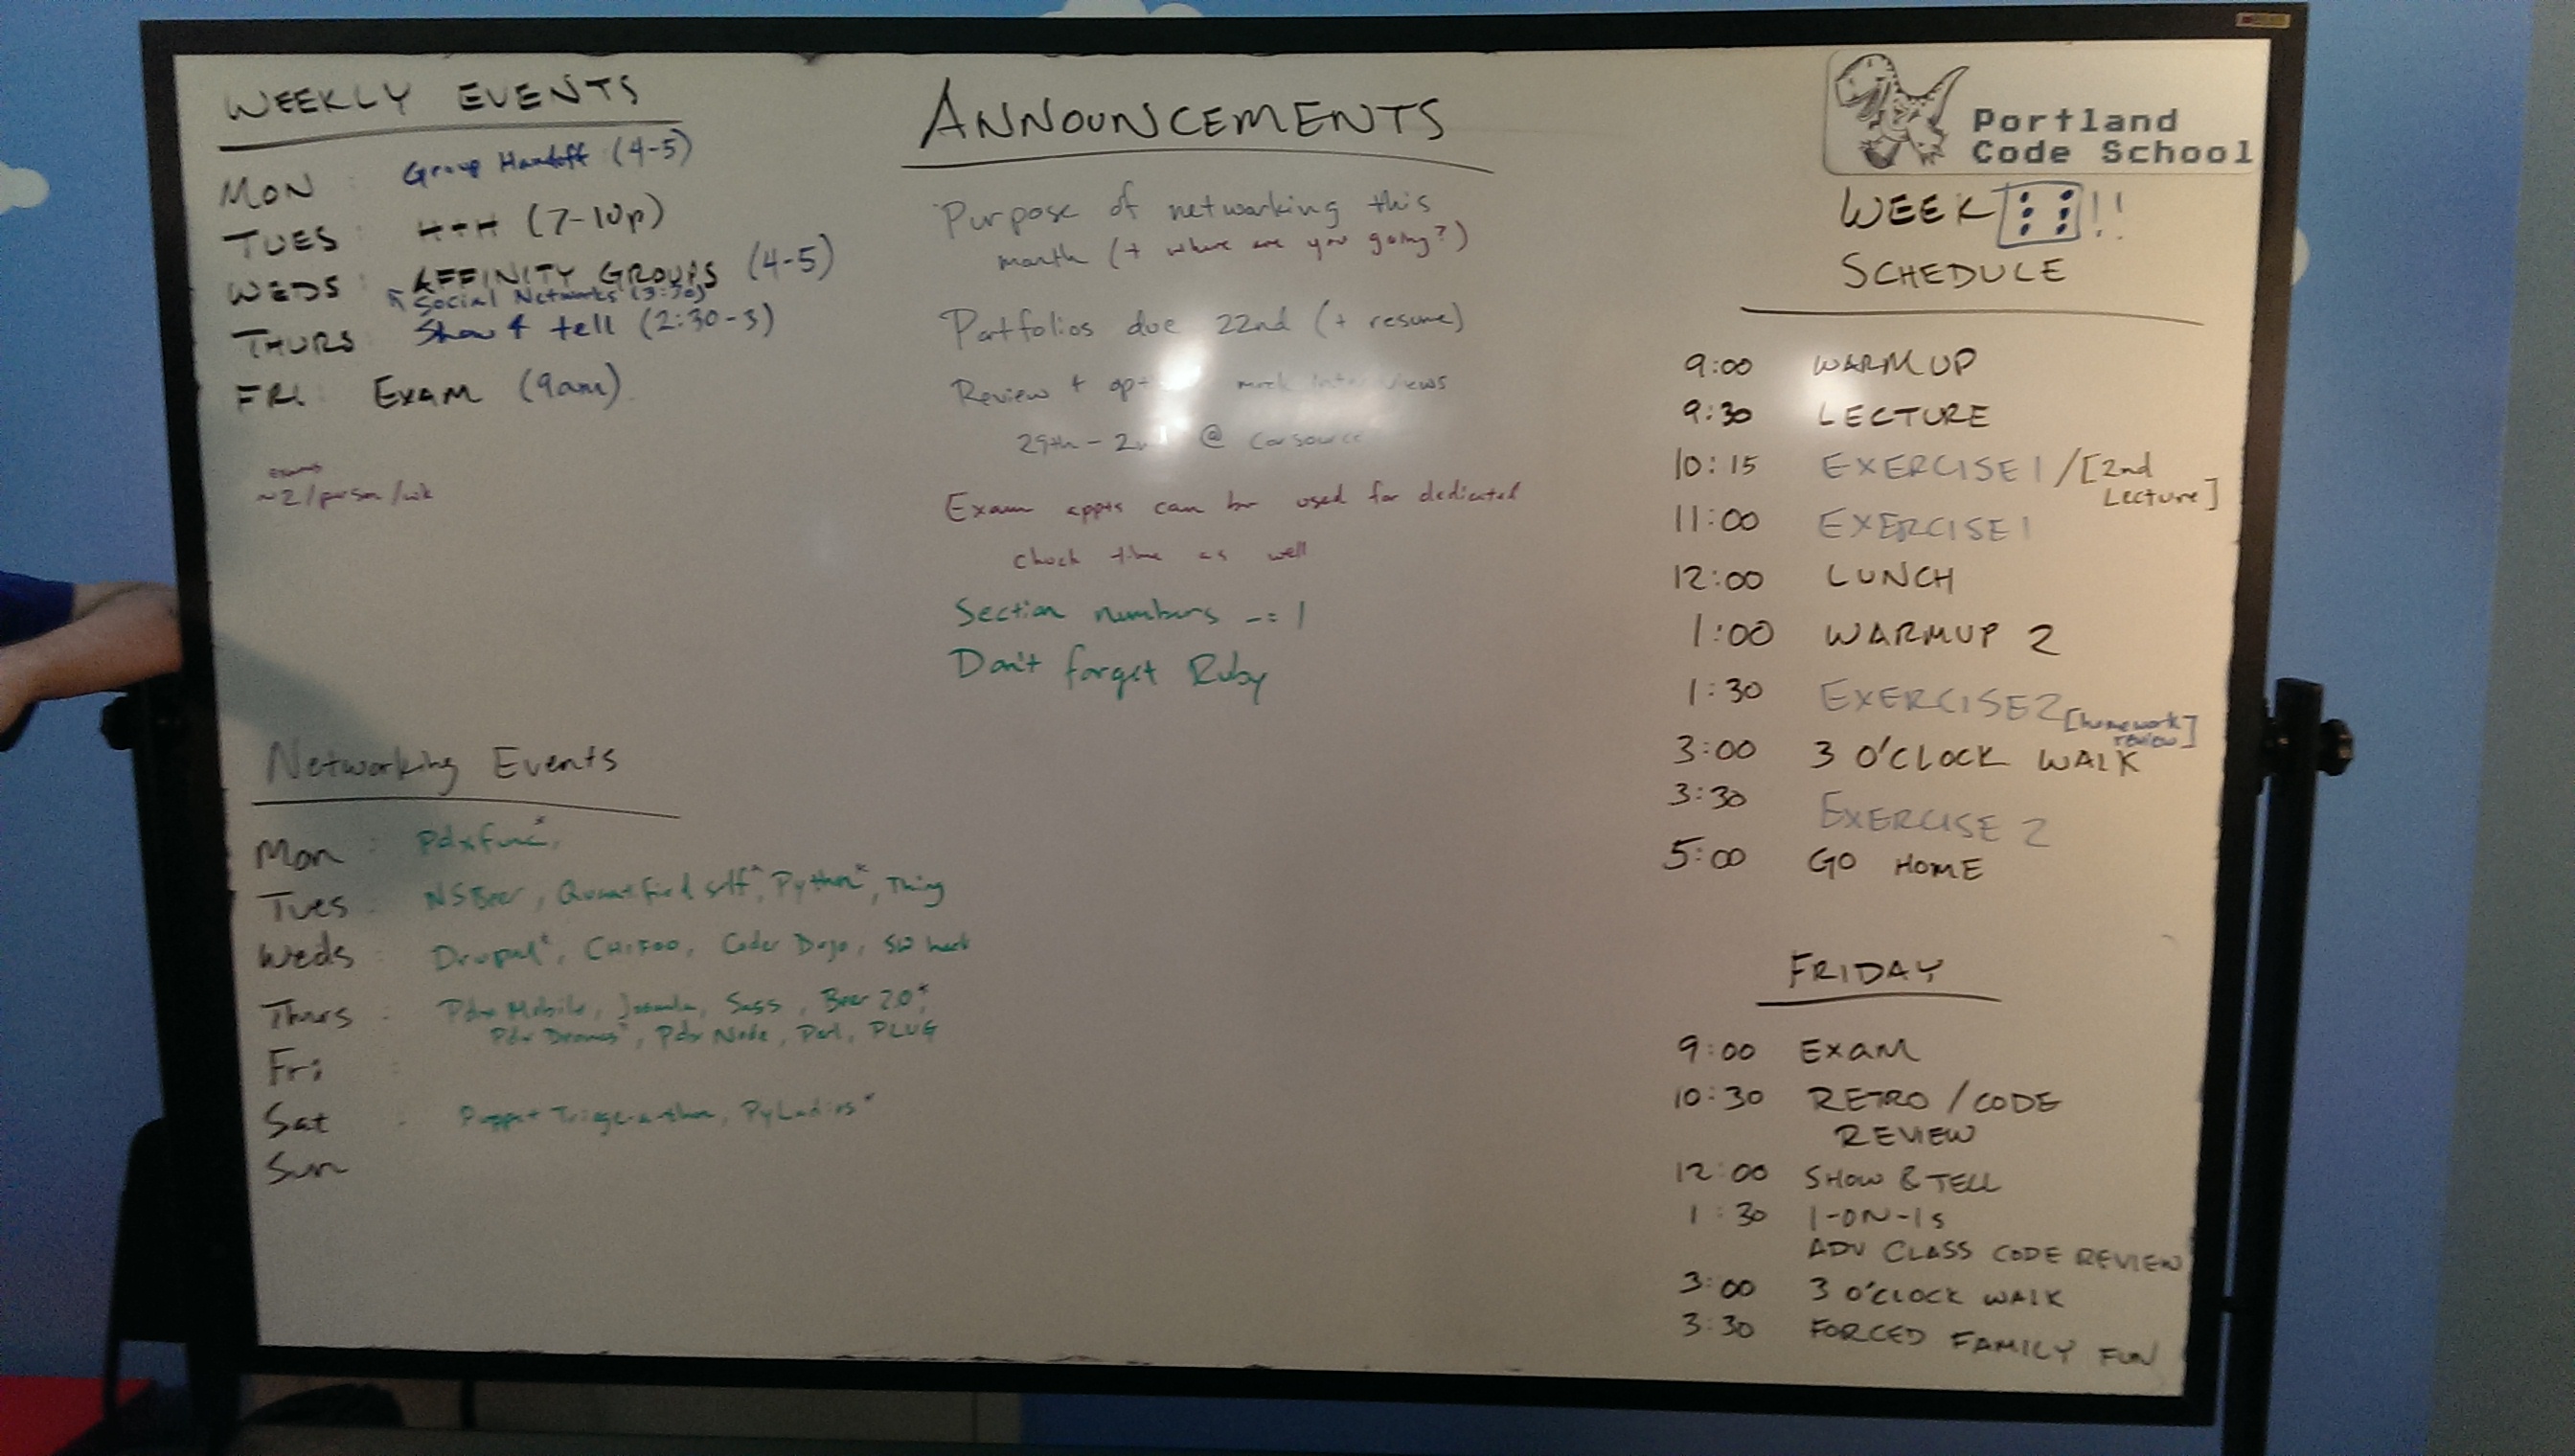 WEEKLY EVENTS
MON : Group Handoff (4-5)
TUES : H+H (7-10p)
WEDS : AFFINITY GROUPS (4-5)
Social Networks (3:30)
THURS Show & tell (2:30-3)
FRI: EXAM (9am)
exams
~2/person/wk
Networking Events
Mon : Pdxfunc*,
Tues : NSBeer, Quantified self*, Python*, Thing
Weds : Drupal*, CHIFOO, Coder Dojo, SW hack
Thurs : Pdx Mobile, Joomla, Sass, Beer 2.0*,
Pdx Drones*, Pdx Node, Perl, PLUG
Fri :
Sat : Puppet Triage-a-thon, PyLadies*
Sun
ANNOUNCEMENTS
Purpose of networking this
month (+ where are you going?)
Portfolios due 22nd (+ resume)
Review + mock interviews
29th - @
Exam appts can be used for dedicated
chuck time as well
Section numbers -= 1
Don't forget Ruby
Portland
Code School
WEEK !!
SCHEDULE
9:00 WARM UP
9:30 LECTURE
10:15 EXERCISE 1 / [2nd
Lecture]
11:00 EXERCISE 1
12:00 LUNCH
1:00 WARMUP 2
1:30 EXERCISE 2 [homework
review]
3:00 3 O'CLOCK WALK
3:30 EXERCISE 2
5:00 GO HOME
FRIDAY
9:00 EXAM
10:30 RETRO / CODE
REVIEW
12:00 SHOW & TELL
1:30 1-ON-1s
ADV CLASS CODE REVIEW
3:00 3 O'CLOCK WALK
3:30 FORCED FAMILY FUN